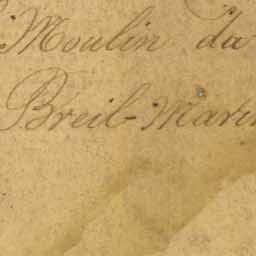 Moulin da
Breil-Marin